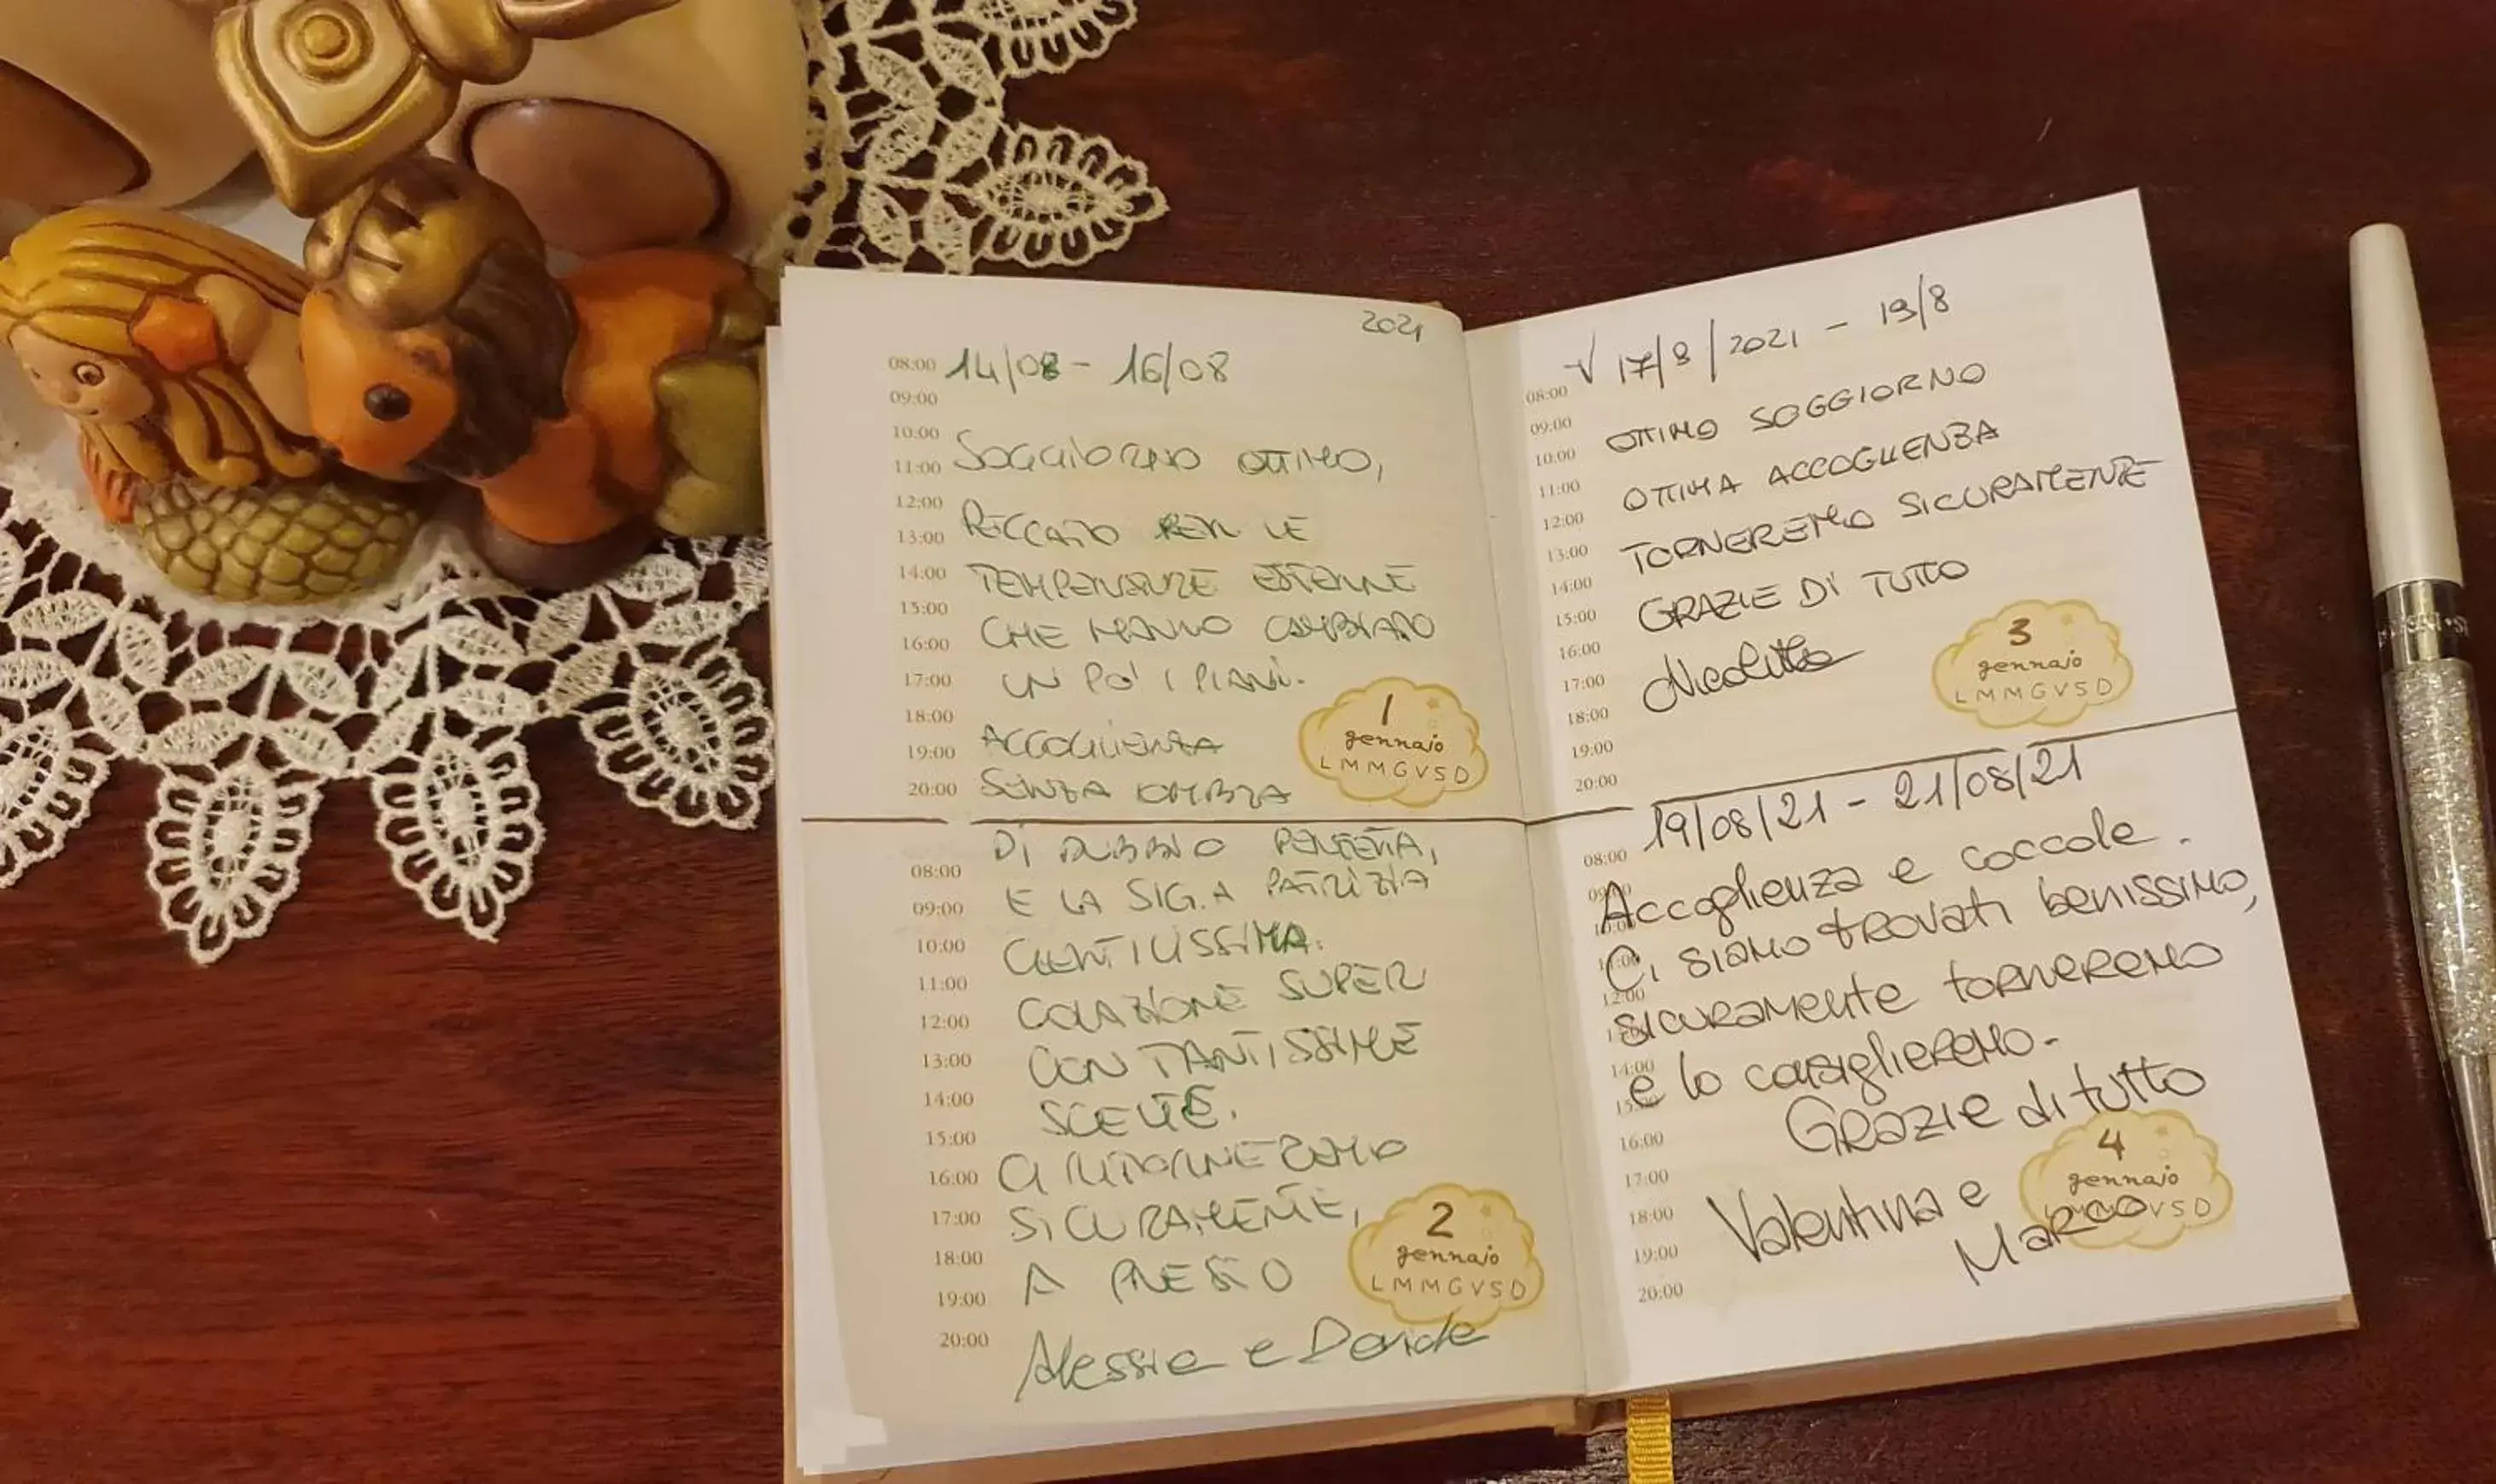 2021
08:00 14/08 - 16/08
09:00
10:00
11:00 SOGGIORNO OTTIMO,
12:00
13:00 PECCATO PER LE
14:00 TEMPERATURE ESTERNE
15:00 CHE HANNO CAMBIATO
16:00
17:00 UN PO' I PIANI.
18:00
19:00 ACCOGLIENZA
20:00 SENZA OMBRA
1
gennaio
L M M G V S D
DI DUBBIO PERFETTA,
08:00
09:00 E LA SIG.A PATRIZIA
10:00 GENTILISSIMA.
11:00
12:00 COLAZIONE SUPER
13:00 CON TANTISSIME
14:00 SCELTE.
15:00
16:00 CI RITORNEREMO
17:00 SICURAMENTE,
18:00
19:00 A PRESTO
20:00
Alessia e Davide
2
gennaio
L M M G V S D
√ 17/8/2021 - 19/8
08:00
09:00 OTTIMO SOGGIORNO
10:00
11:00 OTTIMA ACCOGLIENZA
12:00
13:00 TORNEREMO SICURAMENTE
14:00
15:00 GRAZIE DI TUTTO
16:00
17:00
18:00
19:00
20:00
3
gennaio
L M M G V S D
19/08/21 - 21/08/21
08:00
09:00 Accoglienza e coccole.
10:00
11:00 Ci siamo trovati benissimo,
12:00
sicuramente torneremo
14:00
e lo consiglieremo.
Grazie di tutto
16:00
17:00
18:00 Valentina e
19:00 Marco
20:00
4
gennaio
V S D